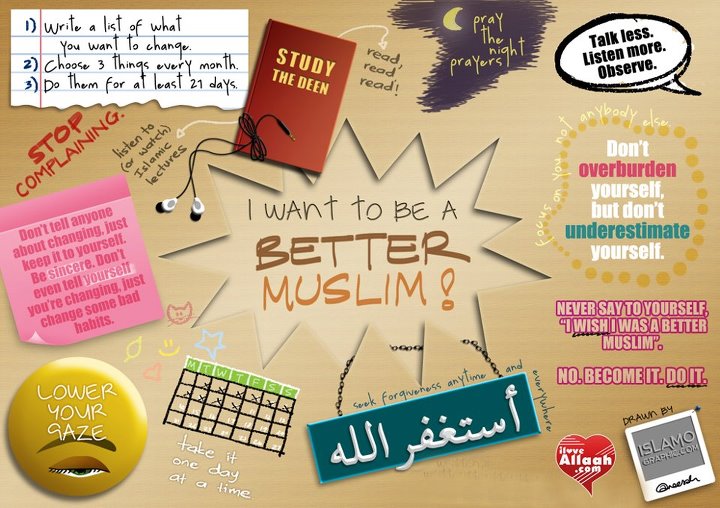 1) Write a list of what
you want to change.
2) Choose 3 things every month.
3) Do them for at least 21 days.
STUDY
THE DEEN
read,
read,
read!
pray
the
night
prayers!
Talk less.
Listen more.
Observe.
STOP
COMPLAINING.
listen to
(or watch)
Islamic
lectures
focus on you not anybody else.
Don't
overburden
yourself,
but don't
underestimate
yourself.
Don't tell anyone
about changing, just
keep it to yourself.
Be sincere. Don't
even tell yourself
you're changing, just
change some bad
habits.
I WANT TO BE A
BETTER
MUSLIM!
NEVER SAY TO YOURSELF,
"I WISH I WAS A BETTER
MUSLIM".
NO. BECOME IT. DO IT.
LOWER
YOUR
GAZE
M T W T F S S
take it
one day
at a time
seek forgiveness anytime and everywhere
أستغفر الله
ilove
Allaah
.com
DRAWN BY
ISLAMO
GRAPHIC.COM
@neesah